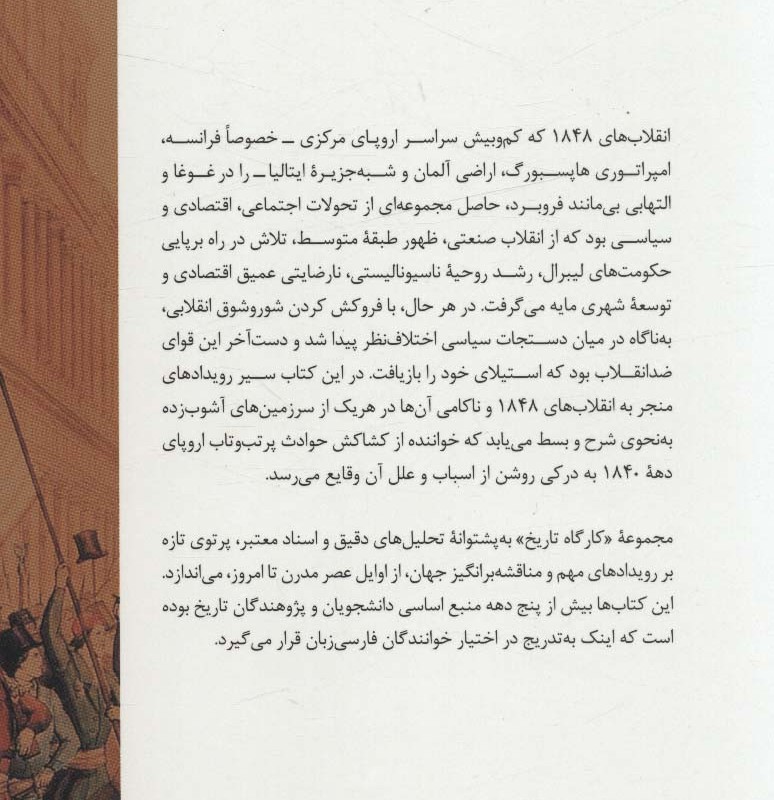 انقلاب‌های ۱۸۴۸ که کم‌وبیش سراسر اروپای مرکزی – خصوصاً فرانسه،
امپراتوری هاپسبورگ، اراضی آلمان و شبه‌جزیرۀ ایتالیا – را در غوغا و
التهابی بی‌مانند فروبرد، حاصل مجموعه‌ای از تحولات اجتماعی، اقتصادی و
سیاسی بود که از انقلاب صنعتی، ظهور طبقۀ متوسط، تلاش در راه برپایی
حکومت‌های لیبرال، رشد روحیۀ ناسیونالیستی، نارضایتی عمیق اقتصادی و
توسعۀ شهری مایه می‌گرفت. در هر حال، با فروکش کردن شوروشوق انقلابی،
به‌ناگاه در میان دستجات سیاسی اختلاف‌نظر پیدا شد و دست‌آخر این قوای
ضدانقلاب بود که استیلای خود را بازیافت. در این کتاب سیر رویدادهای
منجر به انقلاب‌های ۱۸۴۸ و ناکامی آن‌ها در هریک از سرزمین‌های آشوب‌زده
به‌نحوی شرح و بسط می‌یابد که خواننده از کشاکش حوادث پرتب‌وتاب اروپای
دهۀ ۱۸۴۰ به درکی روشن از اسباب و علل آن وقایع می‌رسد.
مجموعۀ «کارگاه تاریخ» به‌پشتوانۀ تحلیل‌های دقیق و اسناد معتبر، پرتوی تازه
بر رویدادهای مهم و مناقشه‌برانگیز جهان، از اوایل عصر مدرن تا امروز، می‌اندازد.
این کتاب‌ها بیش از پنج دهه منبع اساسی دانشجویان و پژوهندگان تاریخ بوده
است که اینک به‌تدریج در اختیار خوانندگان فارسی‌زبان قرار می‌گیرد.